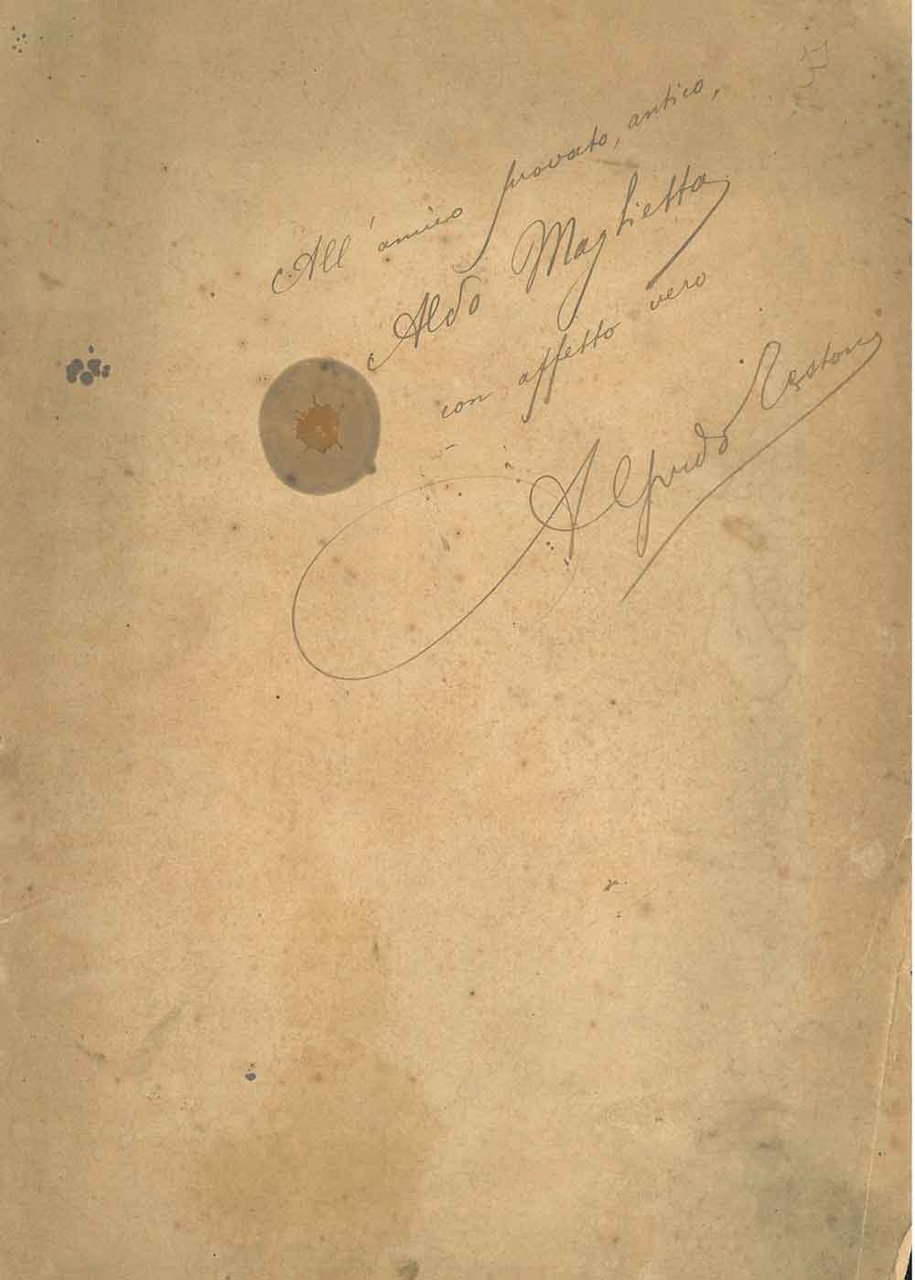 All'amico provato, antico,
Aldo Maglietta
con affetto vero
Alfredo Testoni